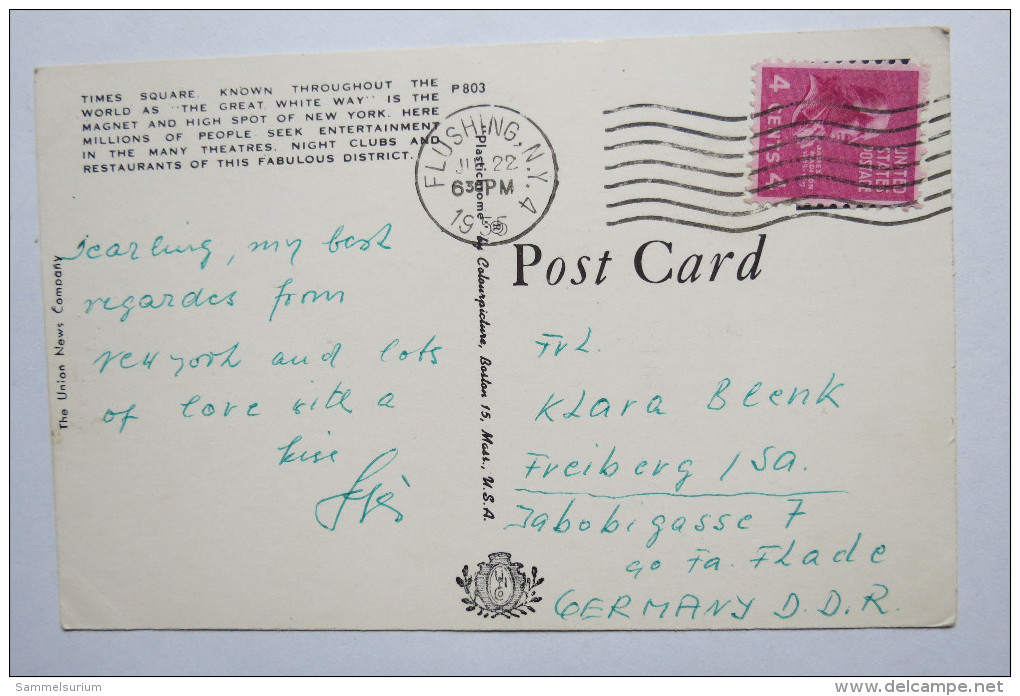 TIMES SQUARE, KNOWN THROUGHOUT THE
WORLD AS "THE GREAT WHITE WAY" IS THE
MAGNET AND HIGH SPOT OF NEW YORK. HERE
MILLIONS OF PEOPLE SEEK ENTERTAINMENT
IN THE MANY THEATRES, NIGHT CLUBS AND
RESTAURANTS OF THIS FABULOUS DISTRICT.
P803
FLUSHING, N.Y. 4
22
630PM
1955
4 CENTS 4
UNITED
STATES
POSTAGE
Post Card
The Union News Company
"Plastichrome"® by Colourpicture, Boston 15, Mass., U.S.A.
my best
regardes from
New york and lots
of love with a
kiss
Frl.
Klara Blenk
Freiberg / Sa.
Jakobigasse 7
Fa. Flade
GERMANY D.D.R.
Sammelsurium
delcampe.net